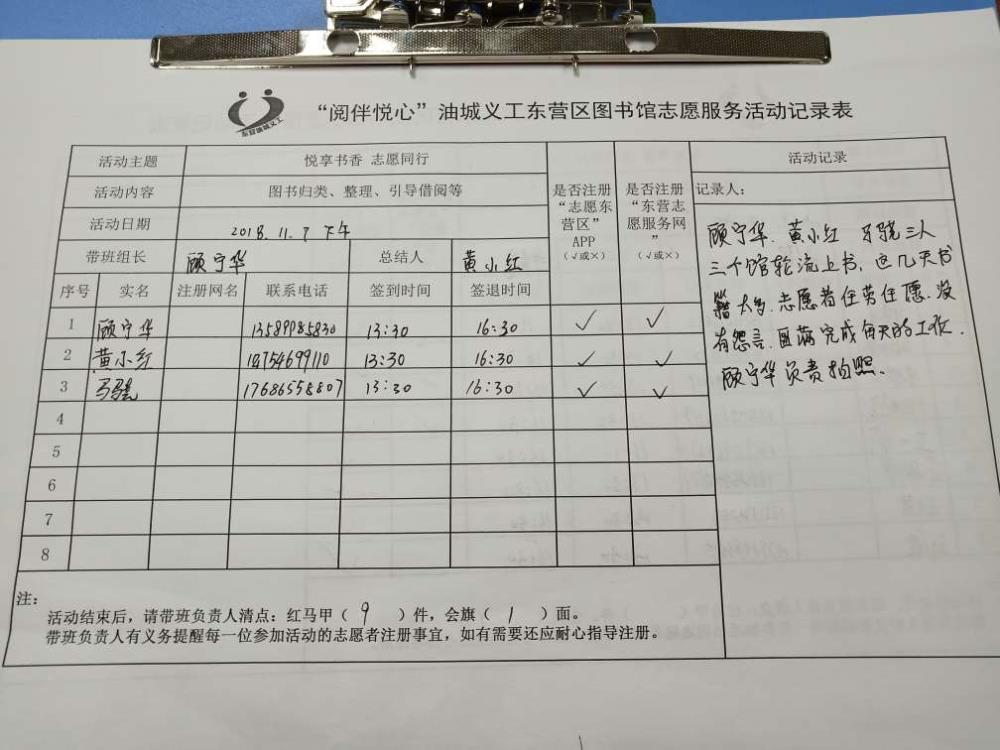 东营油城义工
“阅伴悦心”油城义工东营区图书馆志愿服务活动记录表
活动主题 悦享书香 志愿同行
活动内容 图书归类、整理、引导借阅等
活动日期 2018.11.7 下午
带班组长 顾宁华 总结人 黄小红
是否注册“志愿东营区”APP（√或×）
是否注册“东营志愿服务网”（√或×）
序号 实名 注册网名 联系电话 签到时间 签退时间
1 顾宁华 13589985830 13:30 16:30 ✓ ✓
2 黄小红 13:30 16:30 ✓ ✓
3 17686558807 13:30 16:30 ✓ ✓
4
5
6
7
8
活动记录
记录人：
顾宁华.黄小红 三人
三个馆轮流上书，这几天书
籍太多.志愿者任劳任愿.没
有怨言.圆满完成每天的工作.
顾宁华负责拍照.
注：
活动结束后，请带班负责人清点：红马甲（ 9 ）件，会旗（ 1 ）面。
带班负责人有义务提醒每一位参加活动的志愿者注册事宜，如有需要还应耐心指导注册。